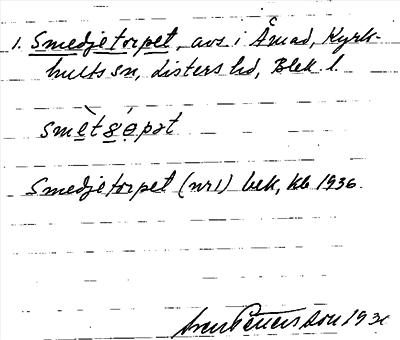 1. Smedjetorpet, avs i Åmad, Kyrk-
hults sn, Listers hd, Blek. l.
Smedjetorpet (nr 1) bek, kb 1936.
Sven Pettersson 193